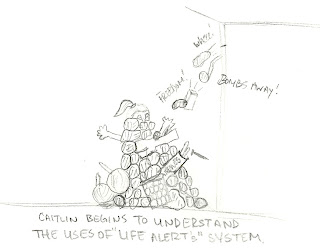 WHEE!
FREEDOM!
BOMBS AWAY!
CAITLIN BEGINS TO UNDERSTAND
THE USES OF "LIFE ALERT'S" SYSTEM